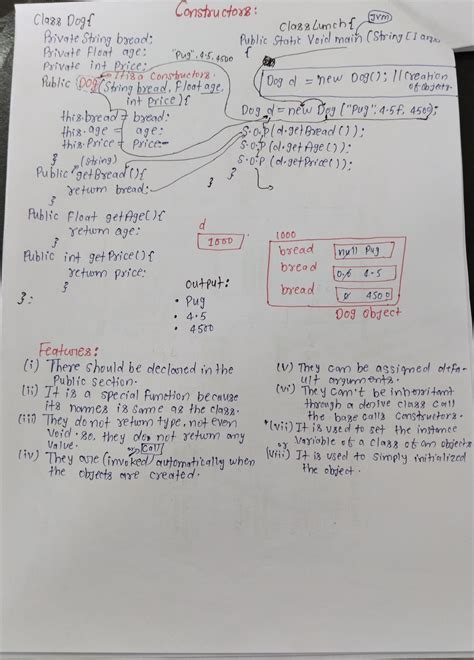 Constructors:
Class Dog{
Private String bread;
Private Float age;
Private int Price;
"Pug", 4.5, 4500
It is a Constructors.
Public Dog (String bread, Float age,
int Price){
this.bread = bread;
this.age = age;
this.Price = Price
}
(String)
Public getBread(){
return bread;
}
Public Float getAge(){
return age;
}
Public int getPrice(){
return Price;
}
}:
Class Lunch{
JVM
Public Static Void main (String [] args
{
Dog d = new Dog(); // Creation
of objects
Dog d = new Dog ("Pug", 4.5f, 4500);
S.O.P (d.getBread());
S.O.P (d.getAge());
S.O.P (d.getPrice());
}
}
d
1000
1000
bread null Pug
bread 0.0 4.5
bread 0 4500
Dog Object
output:
• Pug
• 4.5
• 4500
Features:
(i) There should be declared in the
Public section.
(ii) It is a special function because
its names is same as the class.
(iii) They do not return type, not even
Void. so, they do not return any
value.
call
(iv) They are (invoked) automatically when
the objects are created.
(v) They can be assigned defa-
ult arguments.
(vi) They can't be inheritant
through a derive class call
the base calls Constructors.
*(vii) It is used to set the instance
Variable of a Class of an objects
or
(viii) It is used to simply initialized
the object.